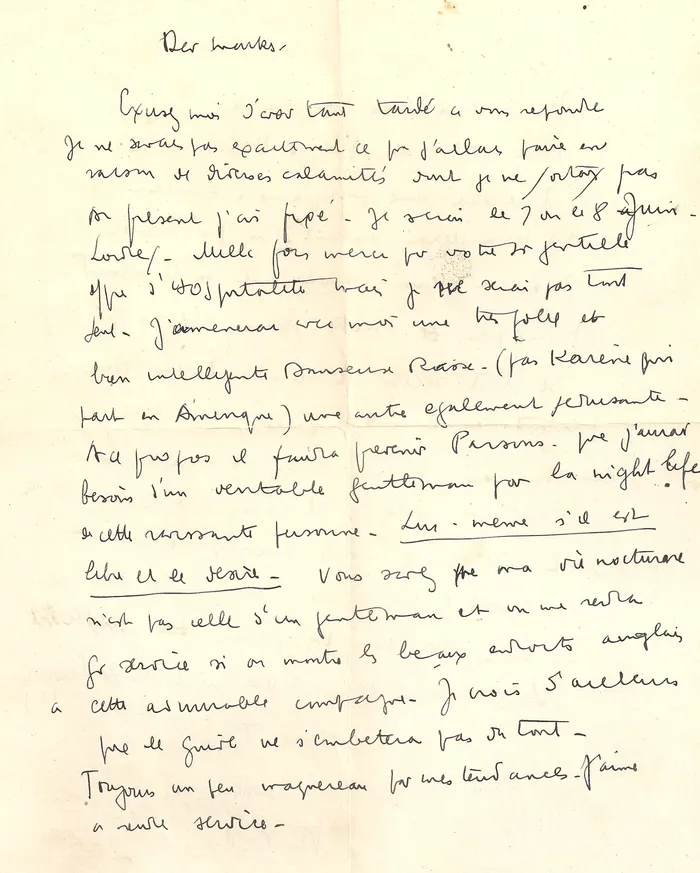 Der Marks.
Excusez moi d'avoir tant tardé a vous repondre
Je ne savais pas exactement ce que j'allais faire en
raison de diverses calamités dont je ne sortais pas
A présent j'ai pipé - Je serai le 7 ou le 8 Juin -
Londres - Mille fois merci pour votre si gentille
offre d'Hospitalité mais je ne serai pas tout
seul - J'amenerai avec moi une tres jolie et
bien intelligente Danseuse Russe - (pas Karène qui
part en Amerique) une autre egalement seduisante -
A ce propos il faudra prevenir Parsons - que j'aurai
besoin d'un veritable gentleman pour la night life
de cette ravissante personne - Lui-même s'il est
libre et le desire - Vous savez que ma vie nocturne
n'est pas celle d'un gentleman et on me rendra
service si on montre les beaux endroits anglais
a cette admirable compagne - Je crois d'ailleurs
que le guide ne s'embetera pas du tout -
Toujours un peu maquereau par mes tendances - J'aime
a rendre service -